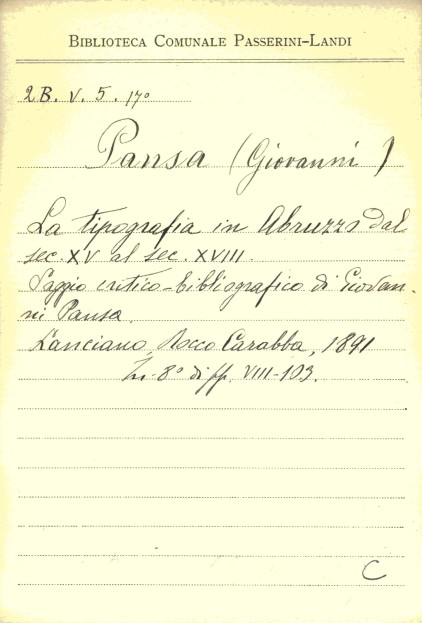 BIBLIOTECA COMUNALE PASSERINI-LANDI
2B. V. 5. 17º
Pansa (Giovanni)
La tipografia in Abruzzo dal
sec. XV al sec. XVIII.
Saggio critico-bibliografico di Giovan-
ni Pansa.
Lanciano, Rocco Carabba, 1891
In-8º di pp. VIII-103.
C